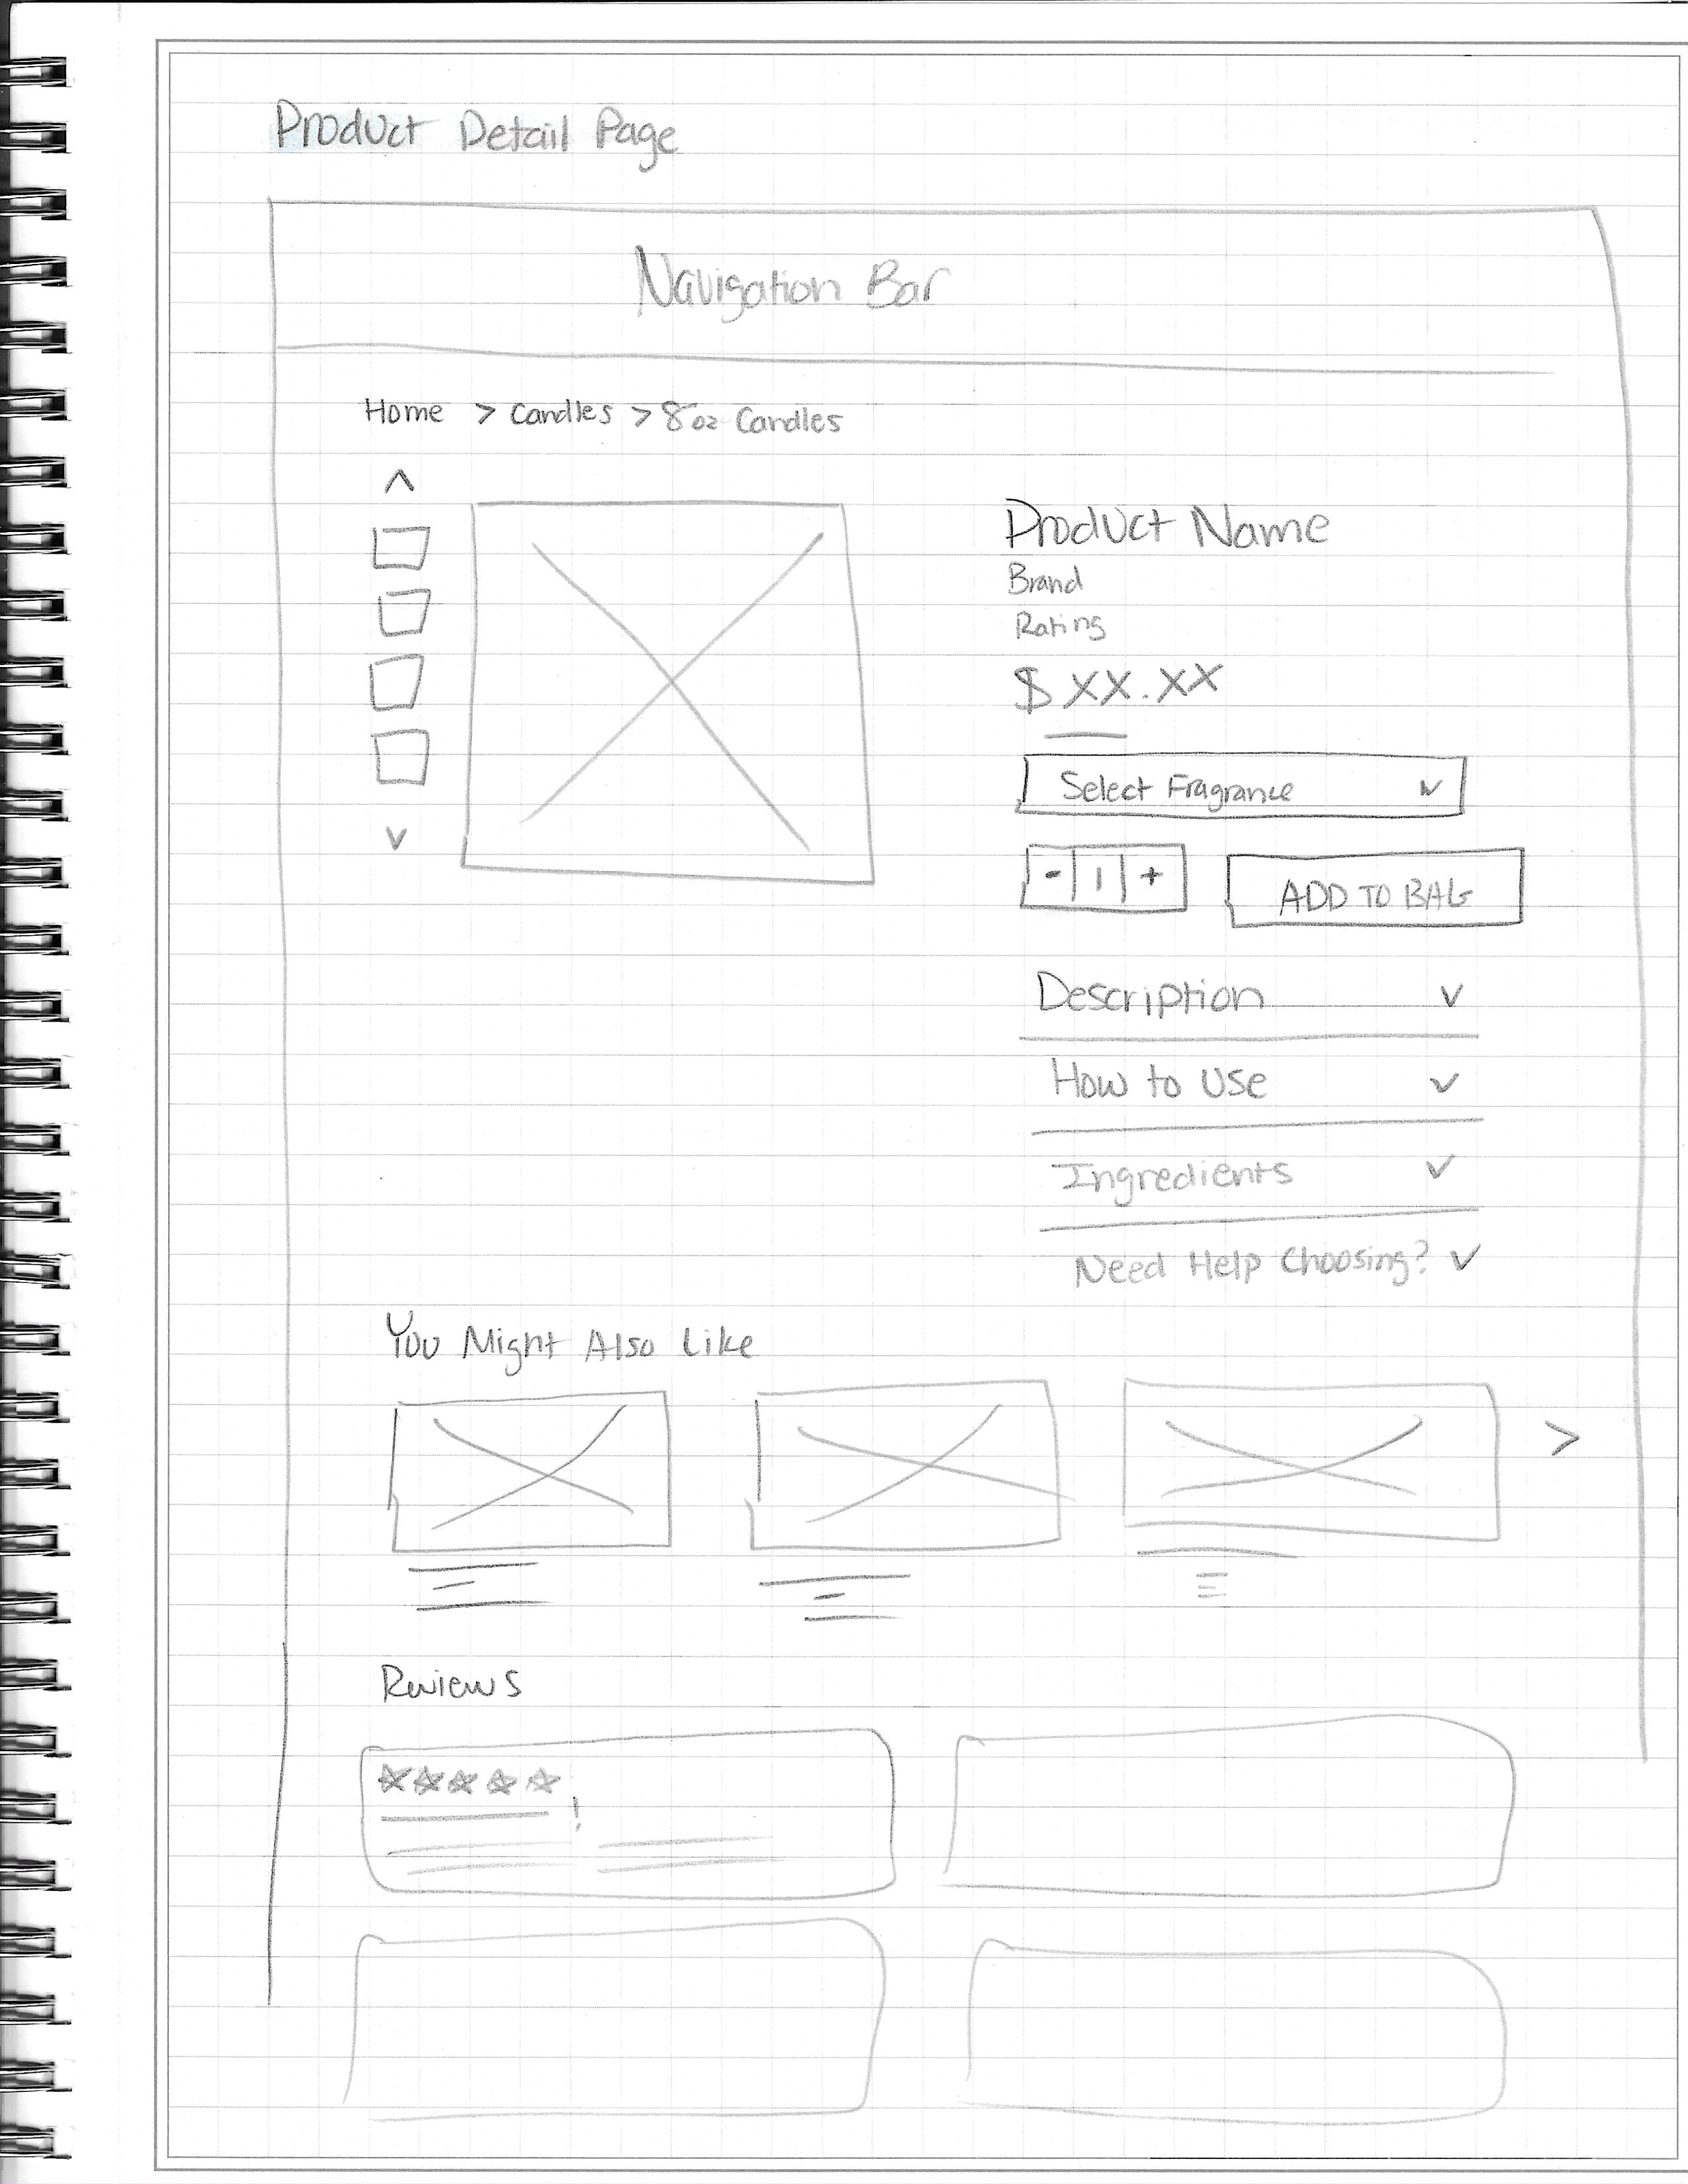 Product Detail Page
Navigation Bar
Home > Candles > 8oz Candles
Product Name
Brand
Rating
$ XX.XX
Select Fragrance
- | 1 | +
ADD TO BAG
Description
How to Use
Ingredients
Need Help Choosing?
You Might Also Like
Reviews